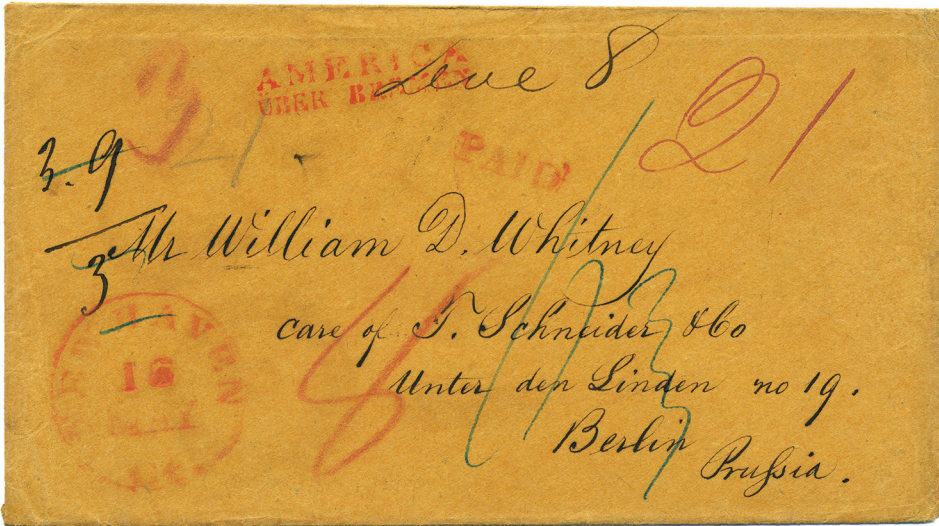 AMERICA
ÜBER BREMEN
8
21
3
3. 9
3
PAID
Mr William D. Whitney
care of T. Schneider & Co
Unter den Linden no 19.
Berlin
Pruſsia.
NEW HAVEN
16
MAY